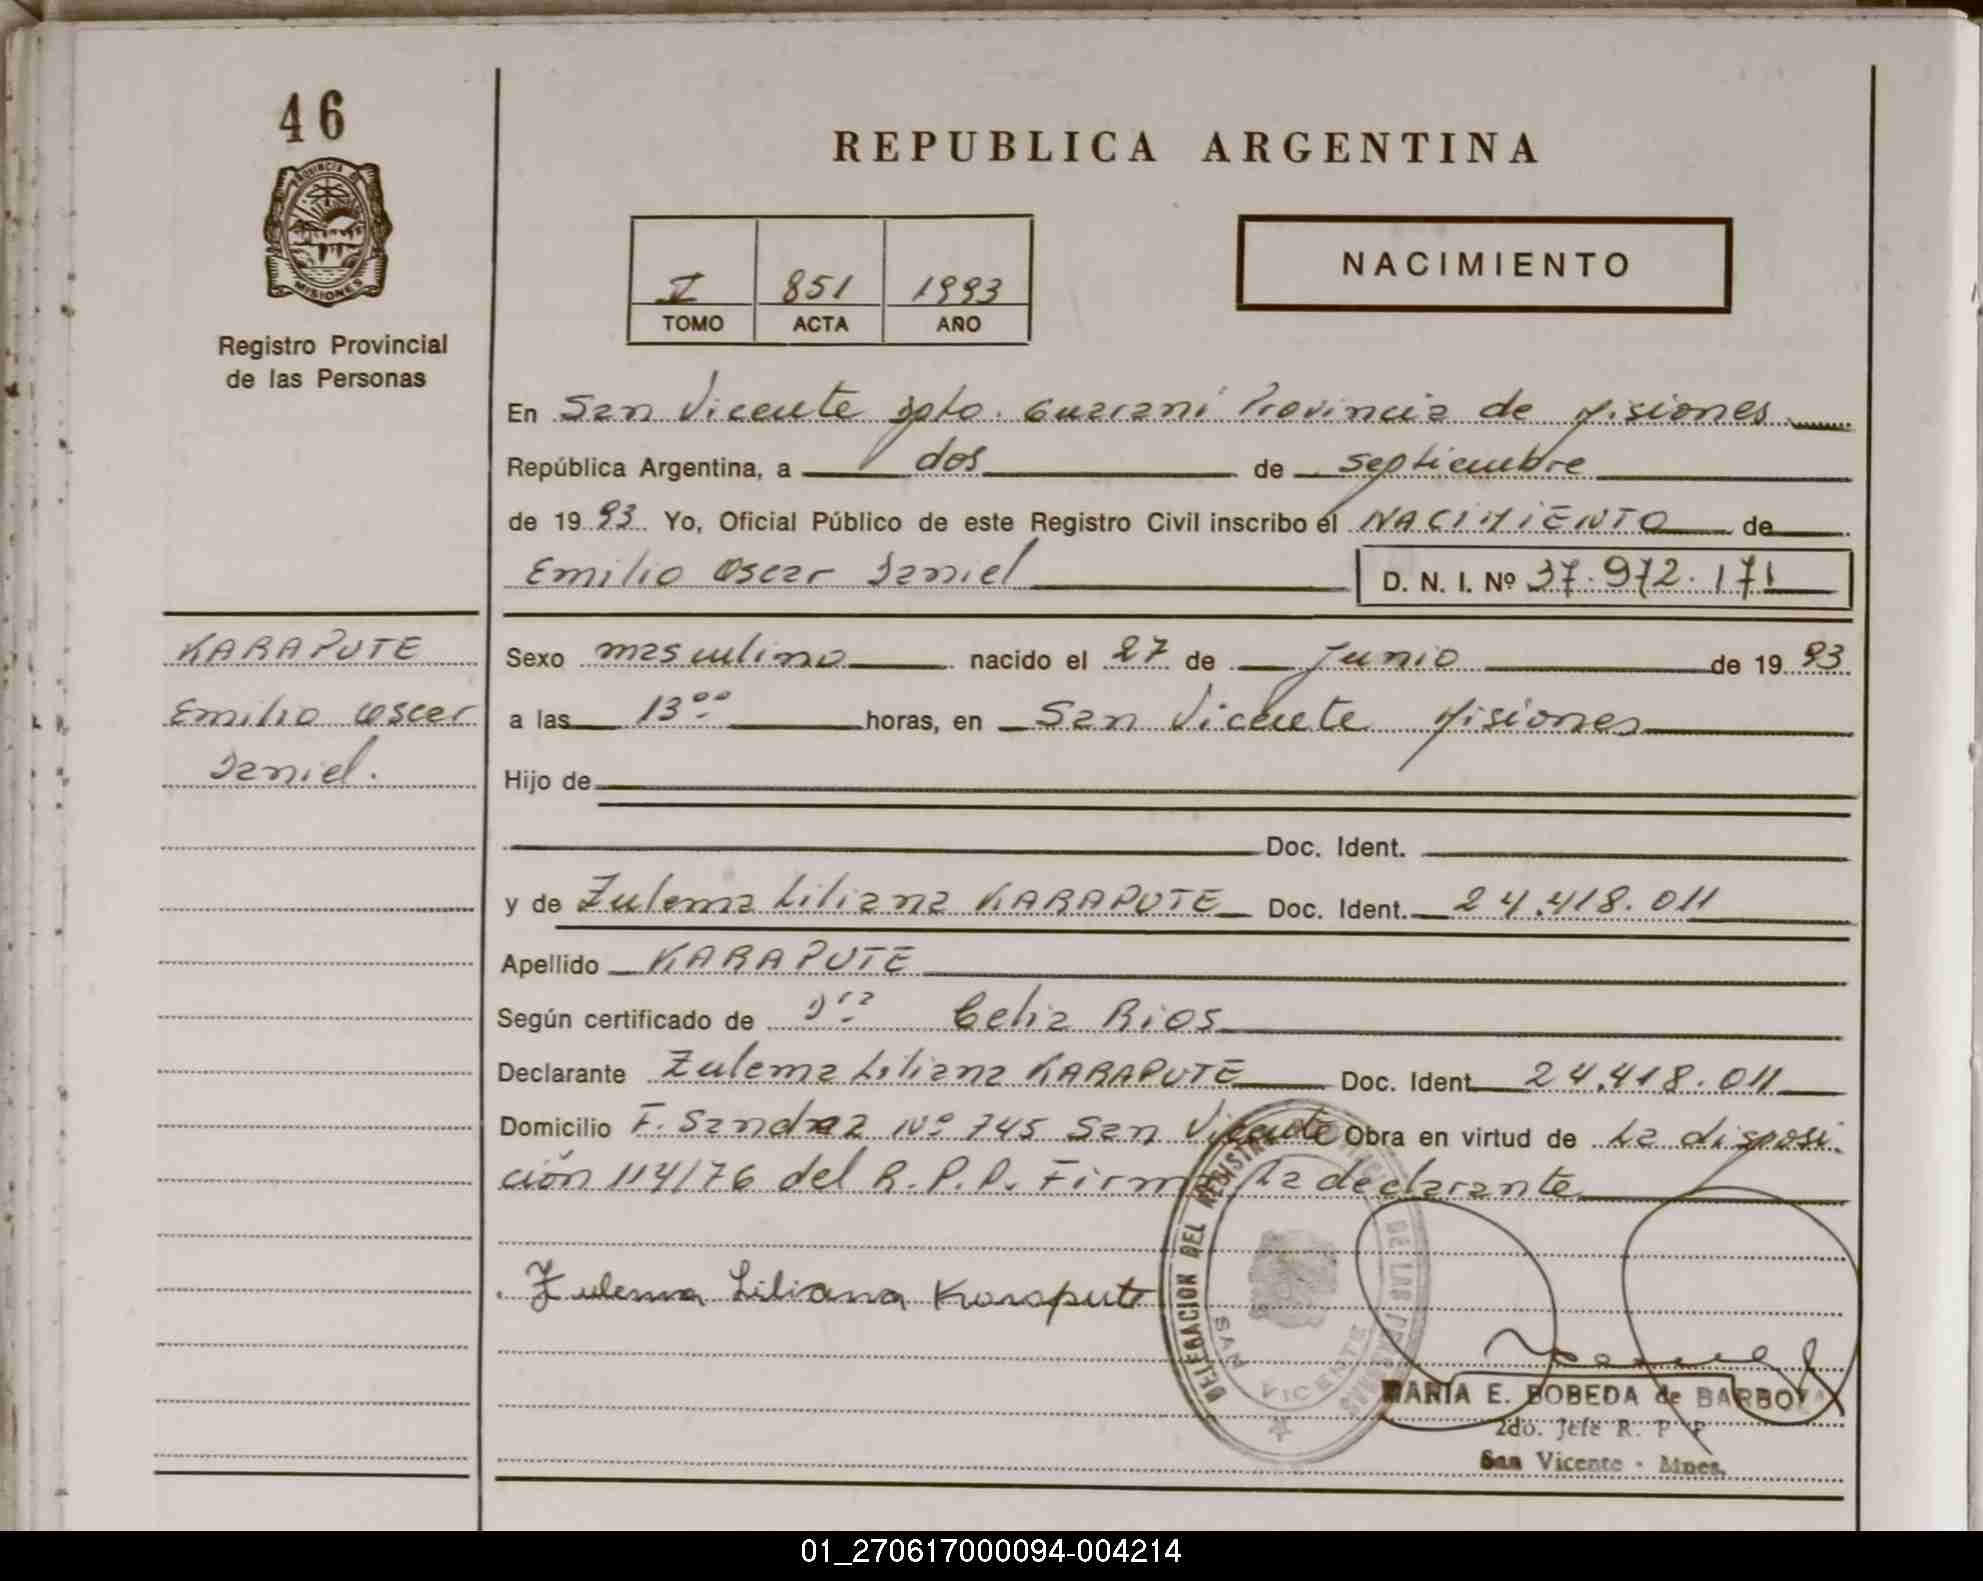 46
REPUBLICA ARGENTINA
PROVINCIA DE
MISIONES
Registro Provincial
de las Personas
V 851 1993
TOMO ACTA AÑO
NACIMIENTO
En San Vicente Dpto. Guaraní Provincia de Misiones
República Argentina, a dos de septiembre
de 1993 Yo, Oficial Público de este Registro Civil inscribo el NACIMIENTO de
Emilio Oscar Daniel D. N. I. Nº 37.972.171
KARAPUTE
Emilio Oscar
Daniel.
Sexo masculino nacido el 27 de Junio de 1993
a las 13 00 horas, en San Vicente Misiones
Hijo de
Doc. Ident.
y de Zulema Liliana KARAPUTE Doc. Ident. 24.418.011
Apellido KARAPUTE
Según certificado de Dra Celia Rios
Declarante Zulema Liliana KARAPUTE Doc. Ident. 24.418.011
Domicilio F. Nº 745 San Vicente Obra en virtud de La disposi-
ción 114/76 del R.P.P. Firma La declarante
Zulema Liliana Karaput
DELEGACION DEL REGISTRO PROVINCIAL DE LAS PERSONAS
SAN VICENTE
MARIA E. BOBEDA de BARBOZA
2do. Jefe R. P. P
San Vicente - Mnes.
01_270617000094-004214